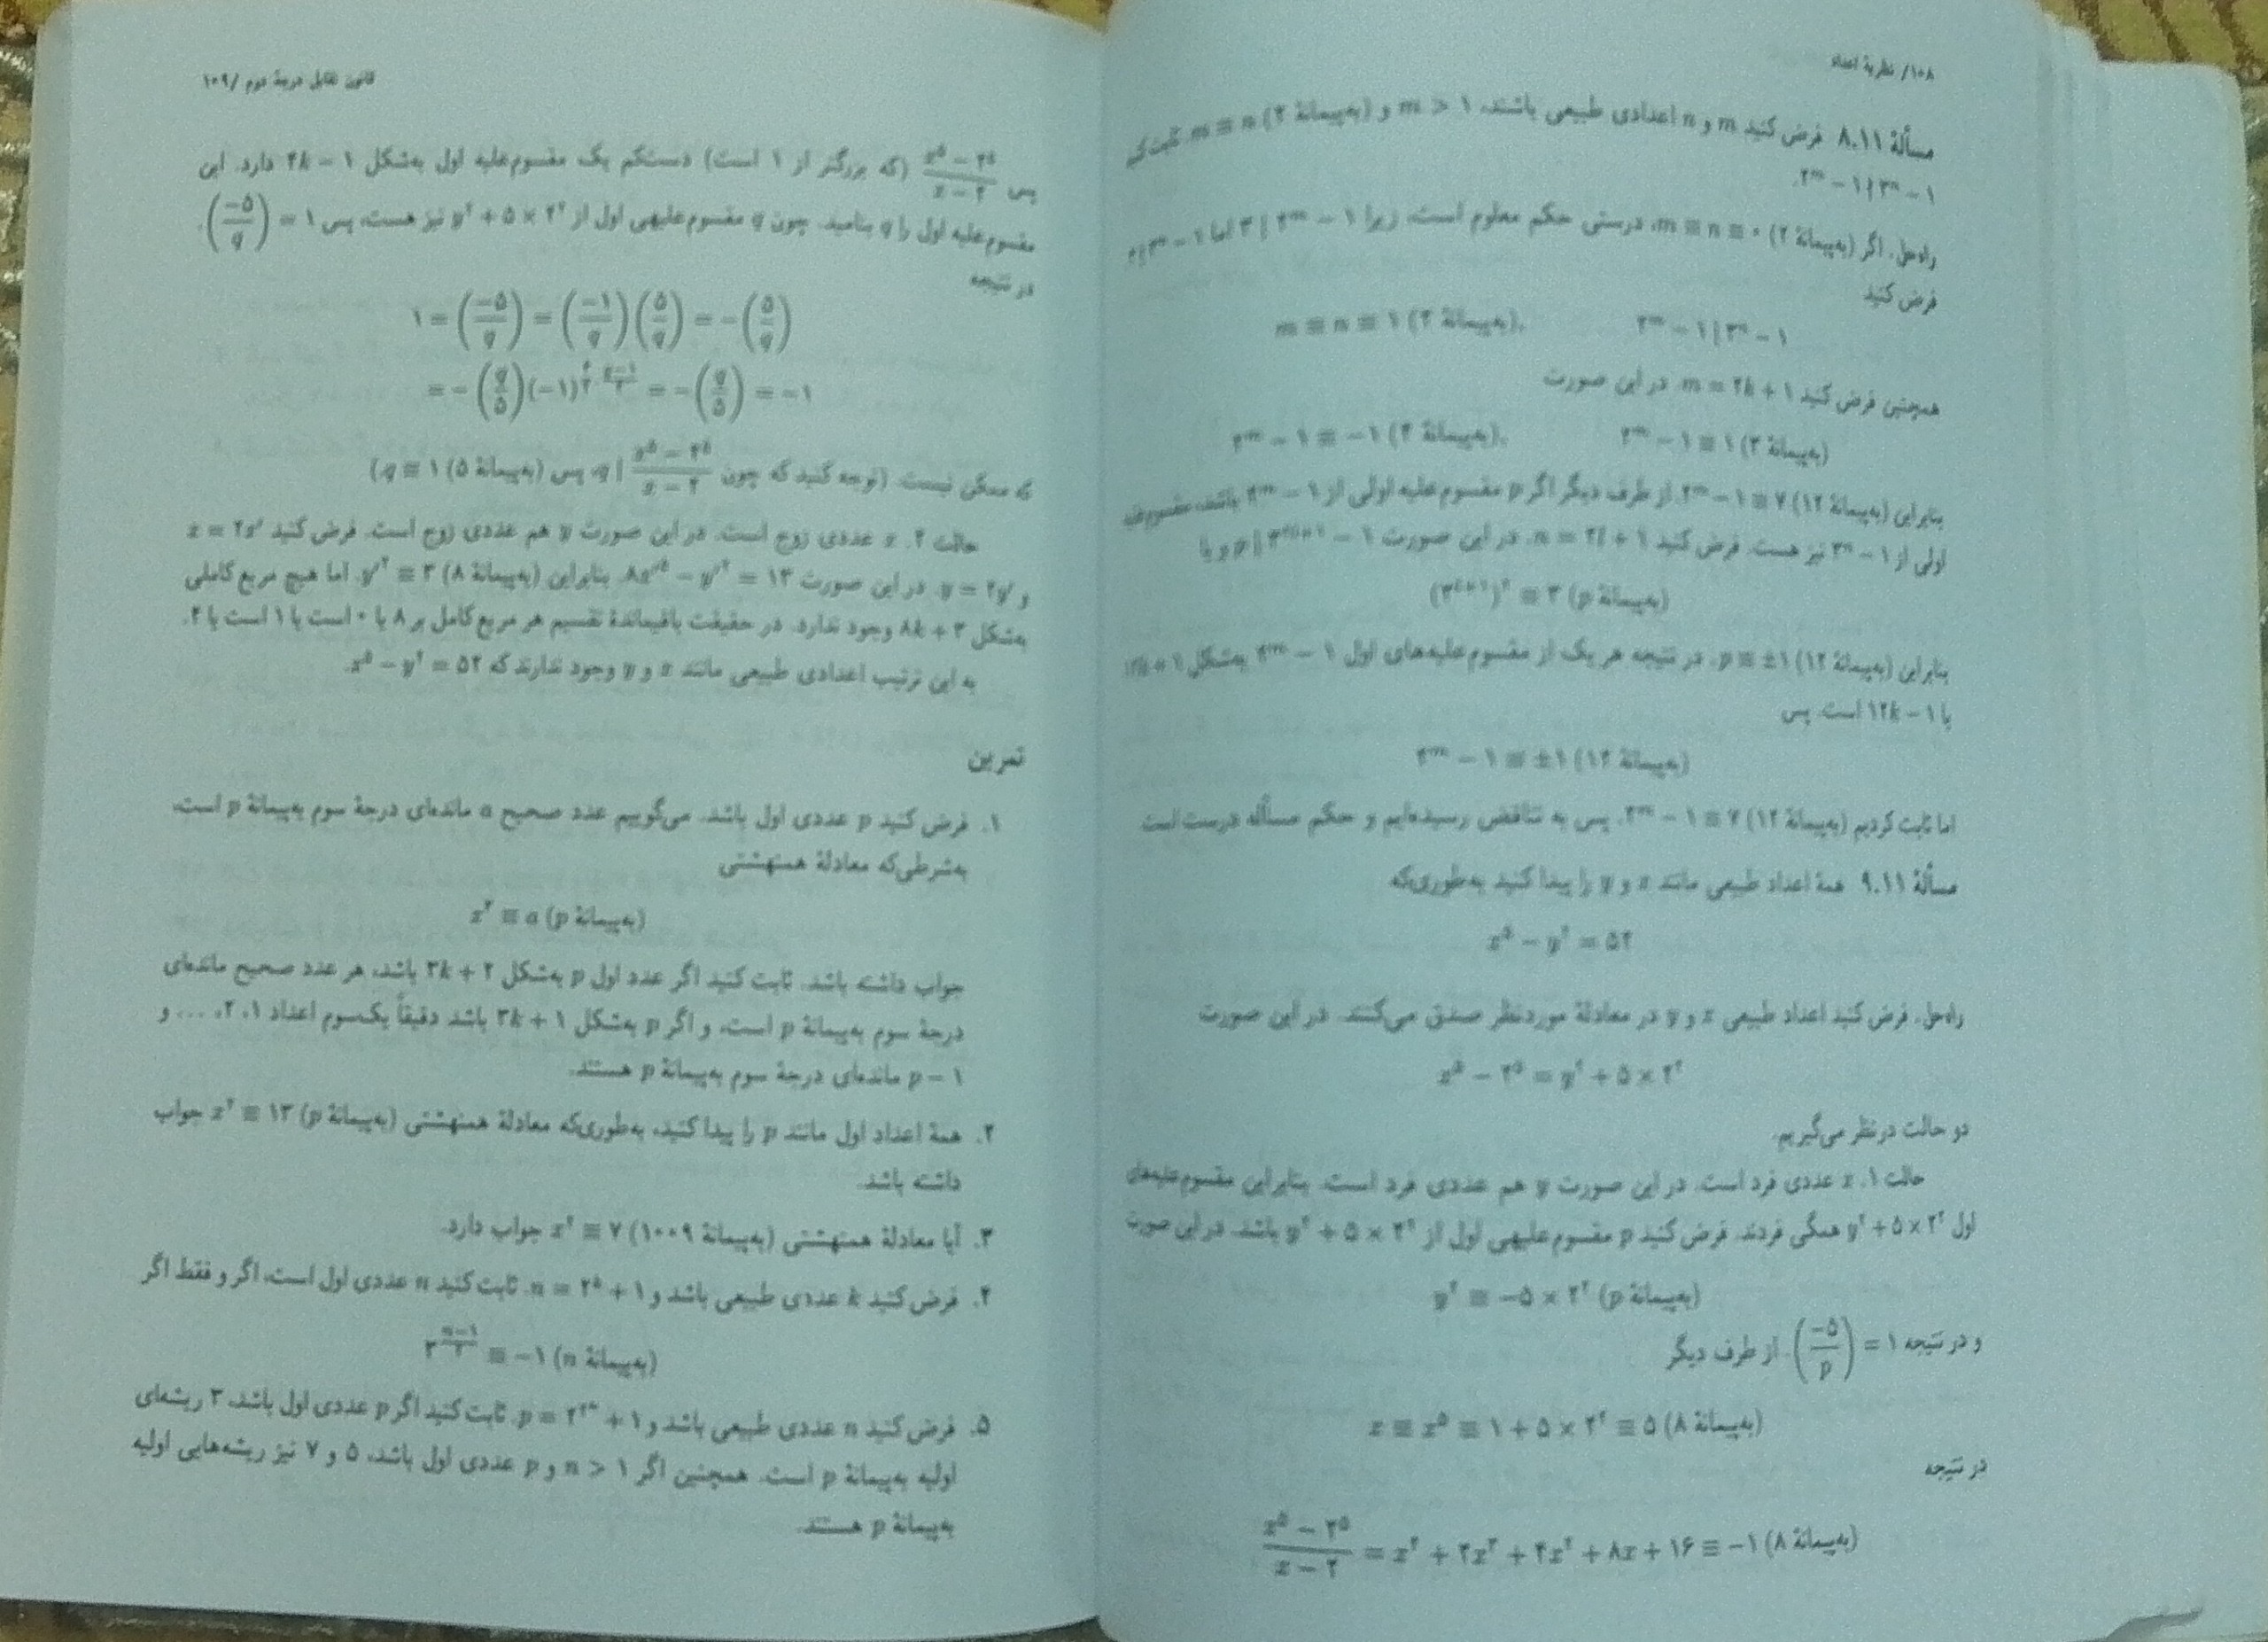 ۱۰۸/ نظریهٔ اعداد
مسألهٔ ۸.۱۱ فرض کنید m و n اعدادی طبیعی باشند، m > ۱ و (به‌پیمانهٔ ۲) m ≡ n ثابت کنید
۲^m − ۱ ∤ ۳^n − ۱.
راه‌حل. اگر (به‌پیمانهٔ ۲) m ≡ n ≡ ۰، درستی حکم معلوم است، زیرا ۳ | ۲^m − ۱ اما ۳ ∤ ۳^n − ۱.
فرض کنید
m ≡ n ≡ ۱ (به‌پیمانهٔ ۲), ۲^m − ۱ | ۳^n − ۱
همچنین فرض کنید m = ۲k + ۱. در این صورت
۲^m − ۱ ≡ −۱ (به‌پیمانهٔ ۴), ۲^m − ۱ ≡ ۱ (به‌پیمانهٔ ۳)
بنابراین (به‌پیمانهٔ ۱۲) ۲^m − ۱ ≡ ۷. از طرف دیگر اگر p مقسوم‌علیه اولی از ۲^m − ۱ باشد، مقسوم‌علیه
اولی از ۳^n − ۱ نیز هست. فرض کنید n = ۲l + ۱. در این صورت p | ۳^{۲l+۱} − ۱ و یا
(۳^{l+۱})^۲ ≡ ۳ (به‌پیمانهٔ p)
بنابراین (به‌پیمانهٔ ۱۲) p ≡ ±۱. در نتیجه هر یک از مقسوم‌علیه‌های اول ۲^m − ۱ به‌شکل ۱۲k + ۱
یا ۱۲k − ۱ است. پس
۲^m − ۱ ≡ ±۱ (به‌پیمانهٔ ۱۲)
اما ثابت کردیم (به‌پیمانهٔ ۱۲) ۲^m − ۱ ≡ ۷. پس به تناقض رسیده‌ایم و حکم مسأله درست است
مسألهٔ ۹.۱۱ همهٔ اعداد طبیعی مانند x و y را پیدا کنید به‌طوری‌که
x^۵ − y^۲ = ۵۲
راه‌حل. فرض کنید اعداد طبیعی x و y در معادلهٔ موردنظر صدق می‌کنند. در این صورت
x^۵ − ۲^۵ = y^۲ + ۵ × ۲^۲
دو حالت درنظر می‌گیریم.
حالت ۱. x عددی فرد است. در این صورت y هم عددی فرد است. بنابراین مقسوم‌علیه‌های
اول y^۲ + ۵ × ۲^۲ همگی فردند. فرض کنید p مقسوم‌علیهی اول از y^۲ + ۵ × ۲^۲ باشد. در این صورت
y^۲ ≡ −۵ × ۲^۲ (به‌پیمانهٔ p)
و در نتیجه (−۵/p) = ۱. از طرف دیگر
x ≡ x^۵ ≡ ۱ + ۵ × ۲^۲ ≡ ۵ (به‌پیمانهٔ ۸)
در نتیجه
(x^۵ − ۲^۵)/(x − ۲) = x^۴ + ۲x^۳ + ۴x^۲ + ۸x + ۱۶ ≡ −۱ (به‌پیمانهٔ ۸)
قانون تقابل درجهٔ دوم /۱۰۹
پس (x^۵ − ۲^۵)/(x − ۲) (که بزرگتر از ۱ است) دستکم یک مقسوم‌علیه اول به‌شکل ۴k − ۱ دارد. این
مقسوم‌علیه اول را q بنامید. چون q مقسوم‌علیهی اول از y^۲ + ۵ × ۲^۲ نیز هست، پس (−۵/q) = ۱.
در نتیجه
۱ = (−۵/q) = (−۱/q)(۵/q) = −(۵/q)
= −(q/۵)(−۱)^{۴/۲ · (q−۱)/۲} = −(q/۵) = −۱
که ممکن نیست. (توجه کنید که چون q | (x^۵ − ۲^۵)/(x − ۲)، پس (به‌پیمانهٔ ۵) q ≡ ۱.)
حالت ۲. x عددی زوج است. در این صورت y هم عددی زوج است. فرض کنید x = ۲x′
و y = ۲y′. در این صورت ۸x′^۵ − y′^۲ = ۱۳. بنابراین (به‌پیمانهٔ ۸) y′^۲ ≡ ۳. اما هیچ مربع کاملی
به‌شکل ۸k + ۳ وجود ندارد. در حقیقت باقیماندهٔ تقسیم هر مربع کامل بر ۸ یا ۰ است یا ۱ است یا ۴.
به این ترتیب اعدادی طبیعی مانند x و y وجود ندارند که x^۵ − y^۲ = ۵۲.
تمرین
۱. فرض کنید p عددی اول باشد. می‌گوییم عدد صحیح a مانده‌ای درجهٔ سوم به‌پیمانهٔ p است،
به‌شرطی‌که معادلهٔ همنهشتی
x^۳ ≡ a (به‌پیمانهٔ p)
جواب داشته باشد. ثابت کنید اگر عدد اول p به‌شکل ۳k + ۲ باشد، هر عدد صحیح مانده‌ای
درجهٔ سوم به‌پیمانهٔ p است، و اگر p به‌شکل ۳k + ۱ باشد دقیقاً یک‌سوم اعداد ۱، ۲، ... و
p − ۱ مانده‌ای درجهٔ سوم به‌پیمانهٔ p هستند.
۲. همهٔ اعداد اول مانند p را پیدا کنید، به‌طوری‌که معادلهٔ همنهشتی (به‌پیمانهٔ p) x^۲ ≡ ۱۳ جواب
داشته باشد.
۳. آیا معادلهٔ همنهشتی (به‌پیمانهٔ ۱۰۰۹) x^۲ ≡ ۷ جواب دارد.
۴. فرض کنید k عددی طبیعی باشد و n = ۲^k + ۱. ثابت کنید n عددی اول است، اگر و فقط اگر
۳^{(n−۱)/۲} ≡ −۱ (به‌پیمانهٔ n)
۵. فرض کنید n عددی طبیعی باشد و p = ۲^{۲^n} + ۱. ثابت کنید اگر p عددی اول باشد، ۳ ریشه‌ای
اولیه به‌پیمانهٔ p است. همچنین اگر n > ۱ و p عددی اول باشد، ۵ و ۷ نیز ریشه‌هایی اولیه
به‌پیمانهٔ p هستند.